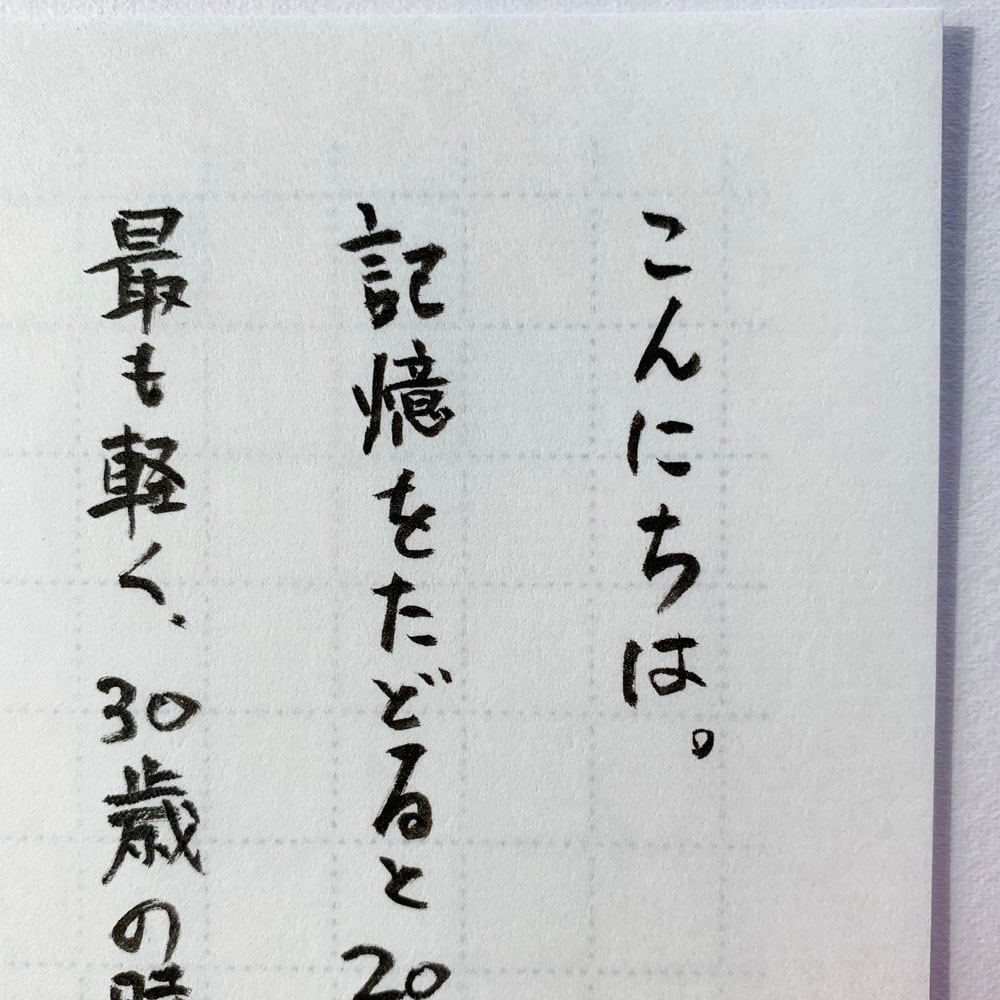 こんにちは。
記憶をたどると20
最も軽く、30歳の時